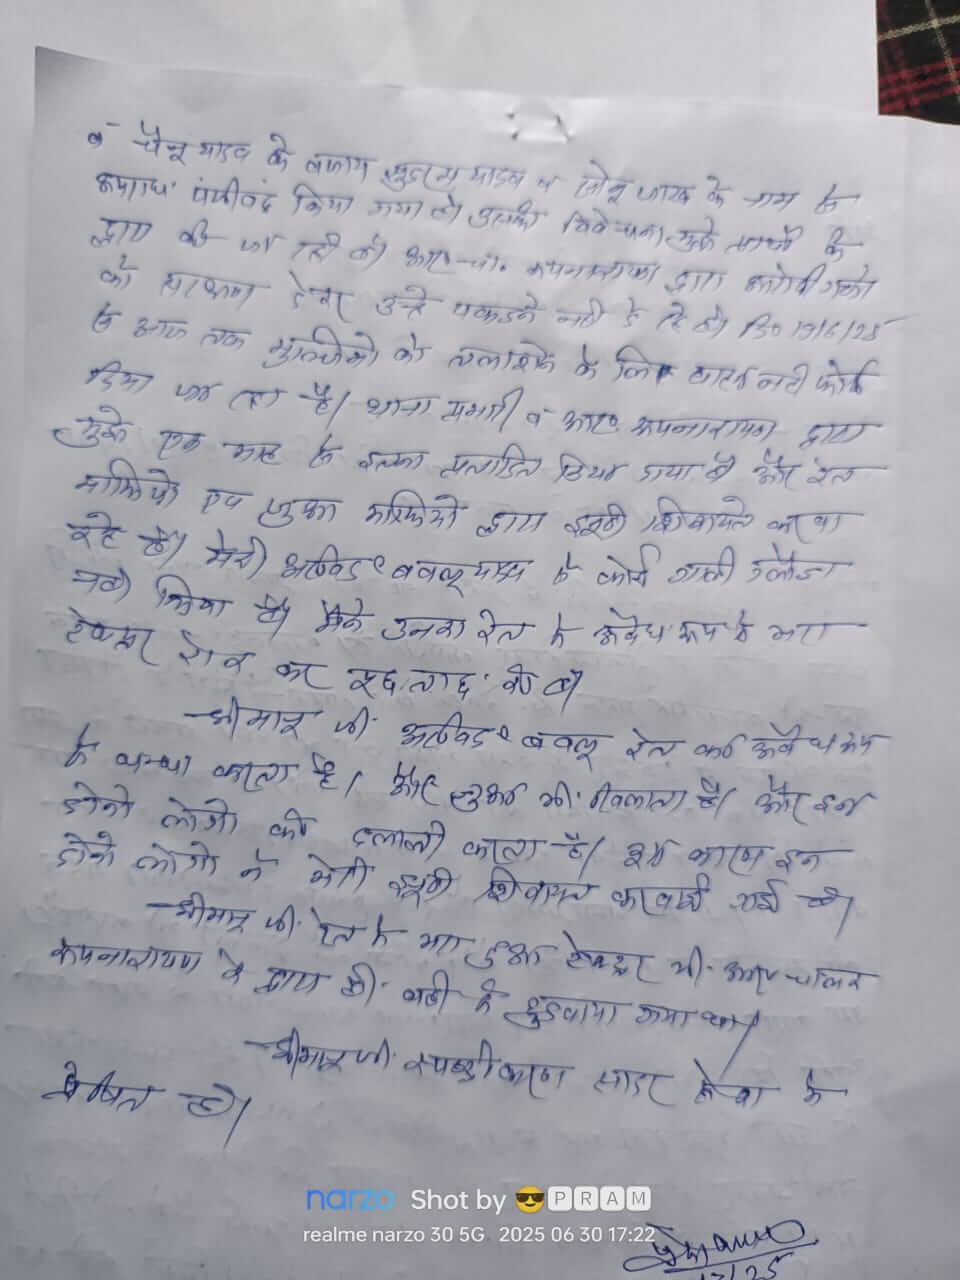 व चैनू यादव के बजाय सुदामा यादव व सोनू यादव के नाम से
अपराध पंजीबद्ध किया गया है। उसकी विवेचना मुझे
द्वारा की जा रही है। आर.चा. रूपनारायण द्वारा आरोपी गणो
को संरक्षण देकर उन्हे पकडने नही दे रहे है। दि० 19/6/25
से आज तक मुल्जिमो को तलाशने के लिए नही
किया जा रहा है। थाना प्रभारी व आर० रूपनारायण द्वारा
मुझे एक माह से प्रताडित किया गया है और रेत
माफियो एवं जुआ द्वारा झूठी शिकायते करवा
रहे है। मेरी अरविन्द बबलू यादव से कोई गाली गलौज
नही किया है। मैने उनका रेत से अवैध रूप से भरा
ट्रेक्टर रोक कर पूछताछ की है।
श्रीमान जी अरविन्द बबलू रेत का अवैध रूप
से धन्धा करता है। और जुआ भी खिलाता है। और इन
दोनो लोगो की दलाली करता है। इस कारण इन
दोनो लोगो ने मेरी झूठी शिकायत करवाई गई है।
श्रीमान जी रेत से भरा हुआ ट्रेक्टर भी आर० चालक
रूपनारायण के द्वारा ही वही से छुडवाया गया था।
श्रीमान जी स्पष्टीकरण सादर सेवा में
प्रेषित है।
narzo Shot by 😎PRAM
realme narzo 30 5G 2025 06 30 17:22